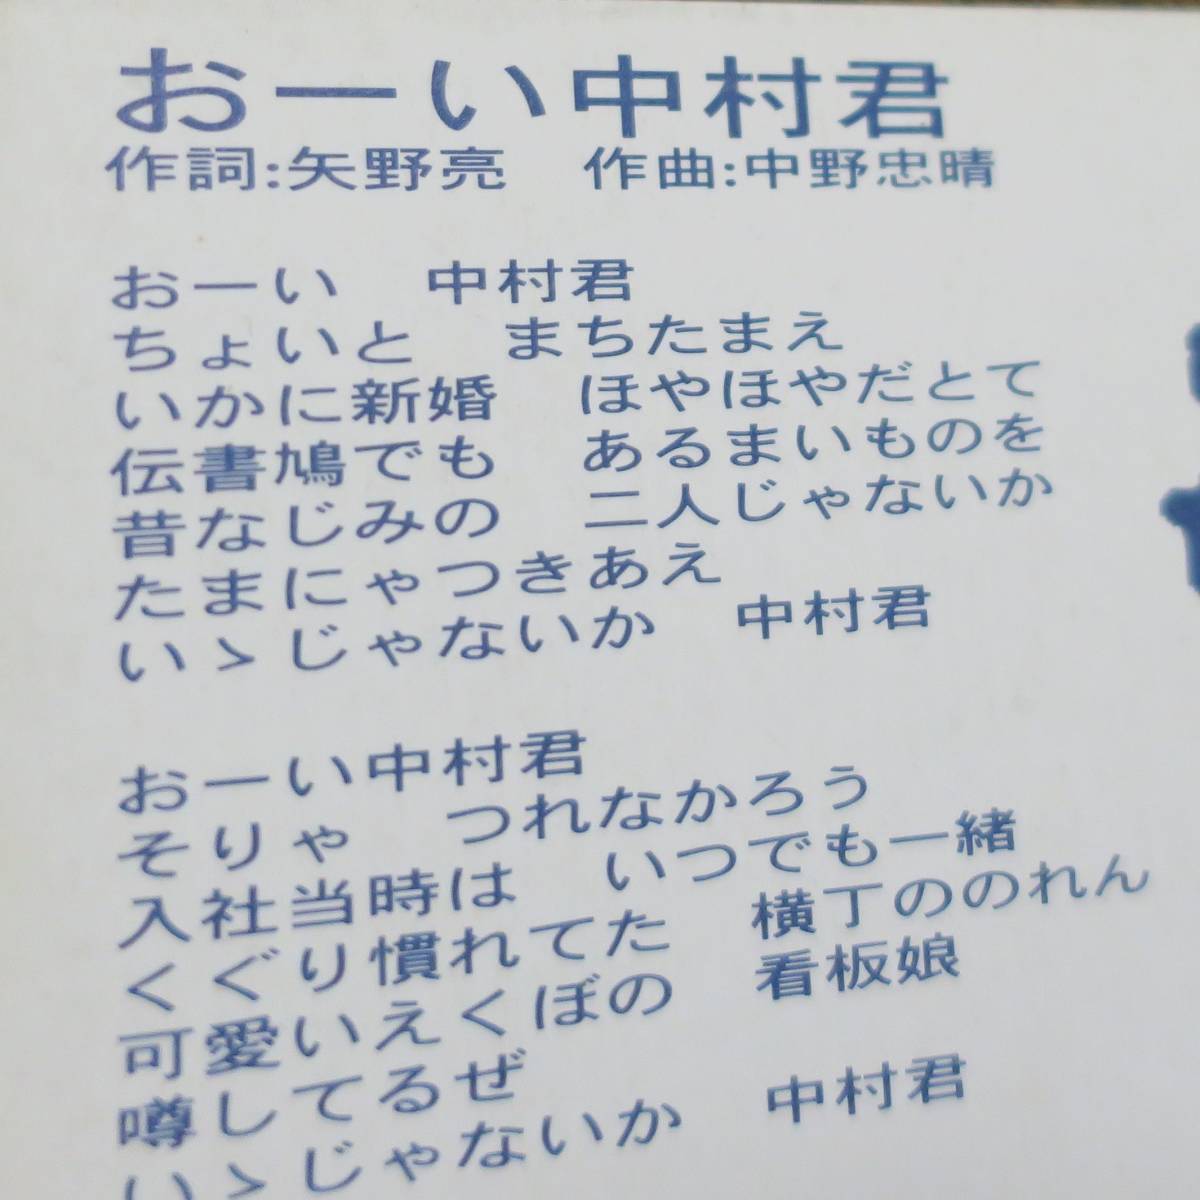 おーい中村君
作詞:矢野亮　作曲:中野忠晴
おーい　中村君
ちょいと　まちたまえ
いかに新婚　ほやほやだとて
伝書鳩でも　あるまいものを
昔なじみの　二人じゃないか
たまにゃつきあえ
いゝじゃないか　中村君
おーい中村君
そりゃ　つれなかろう
入社当時は　いつでも一緒
くぐり慣れてた　横丁ののれん
可愛いえくぼの　看板娘
噂してるぜ
いゝじゃないか　中村君